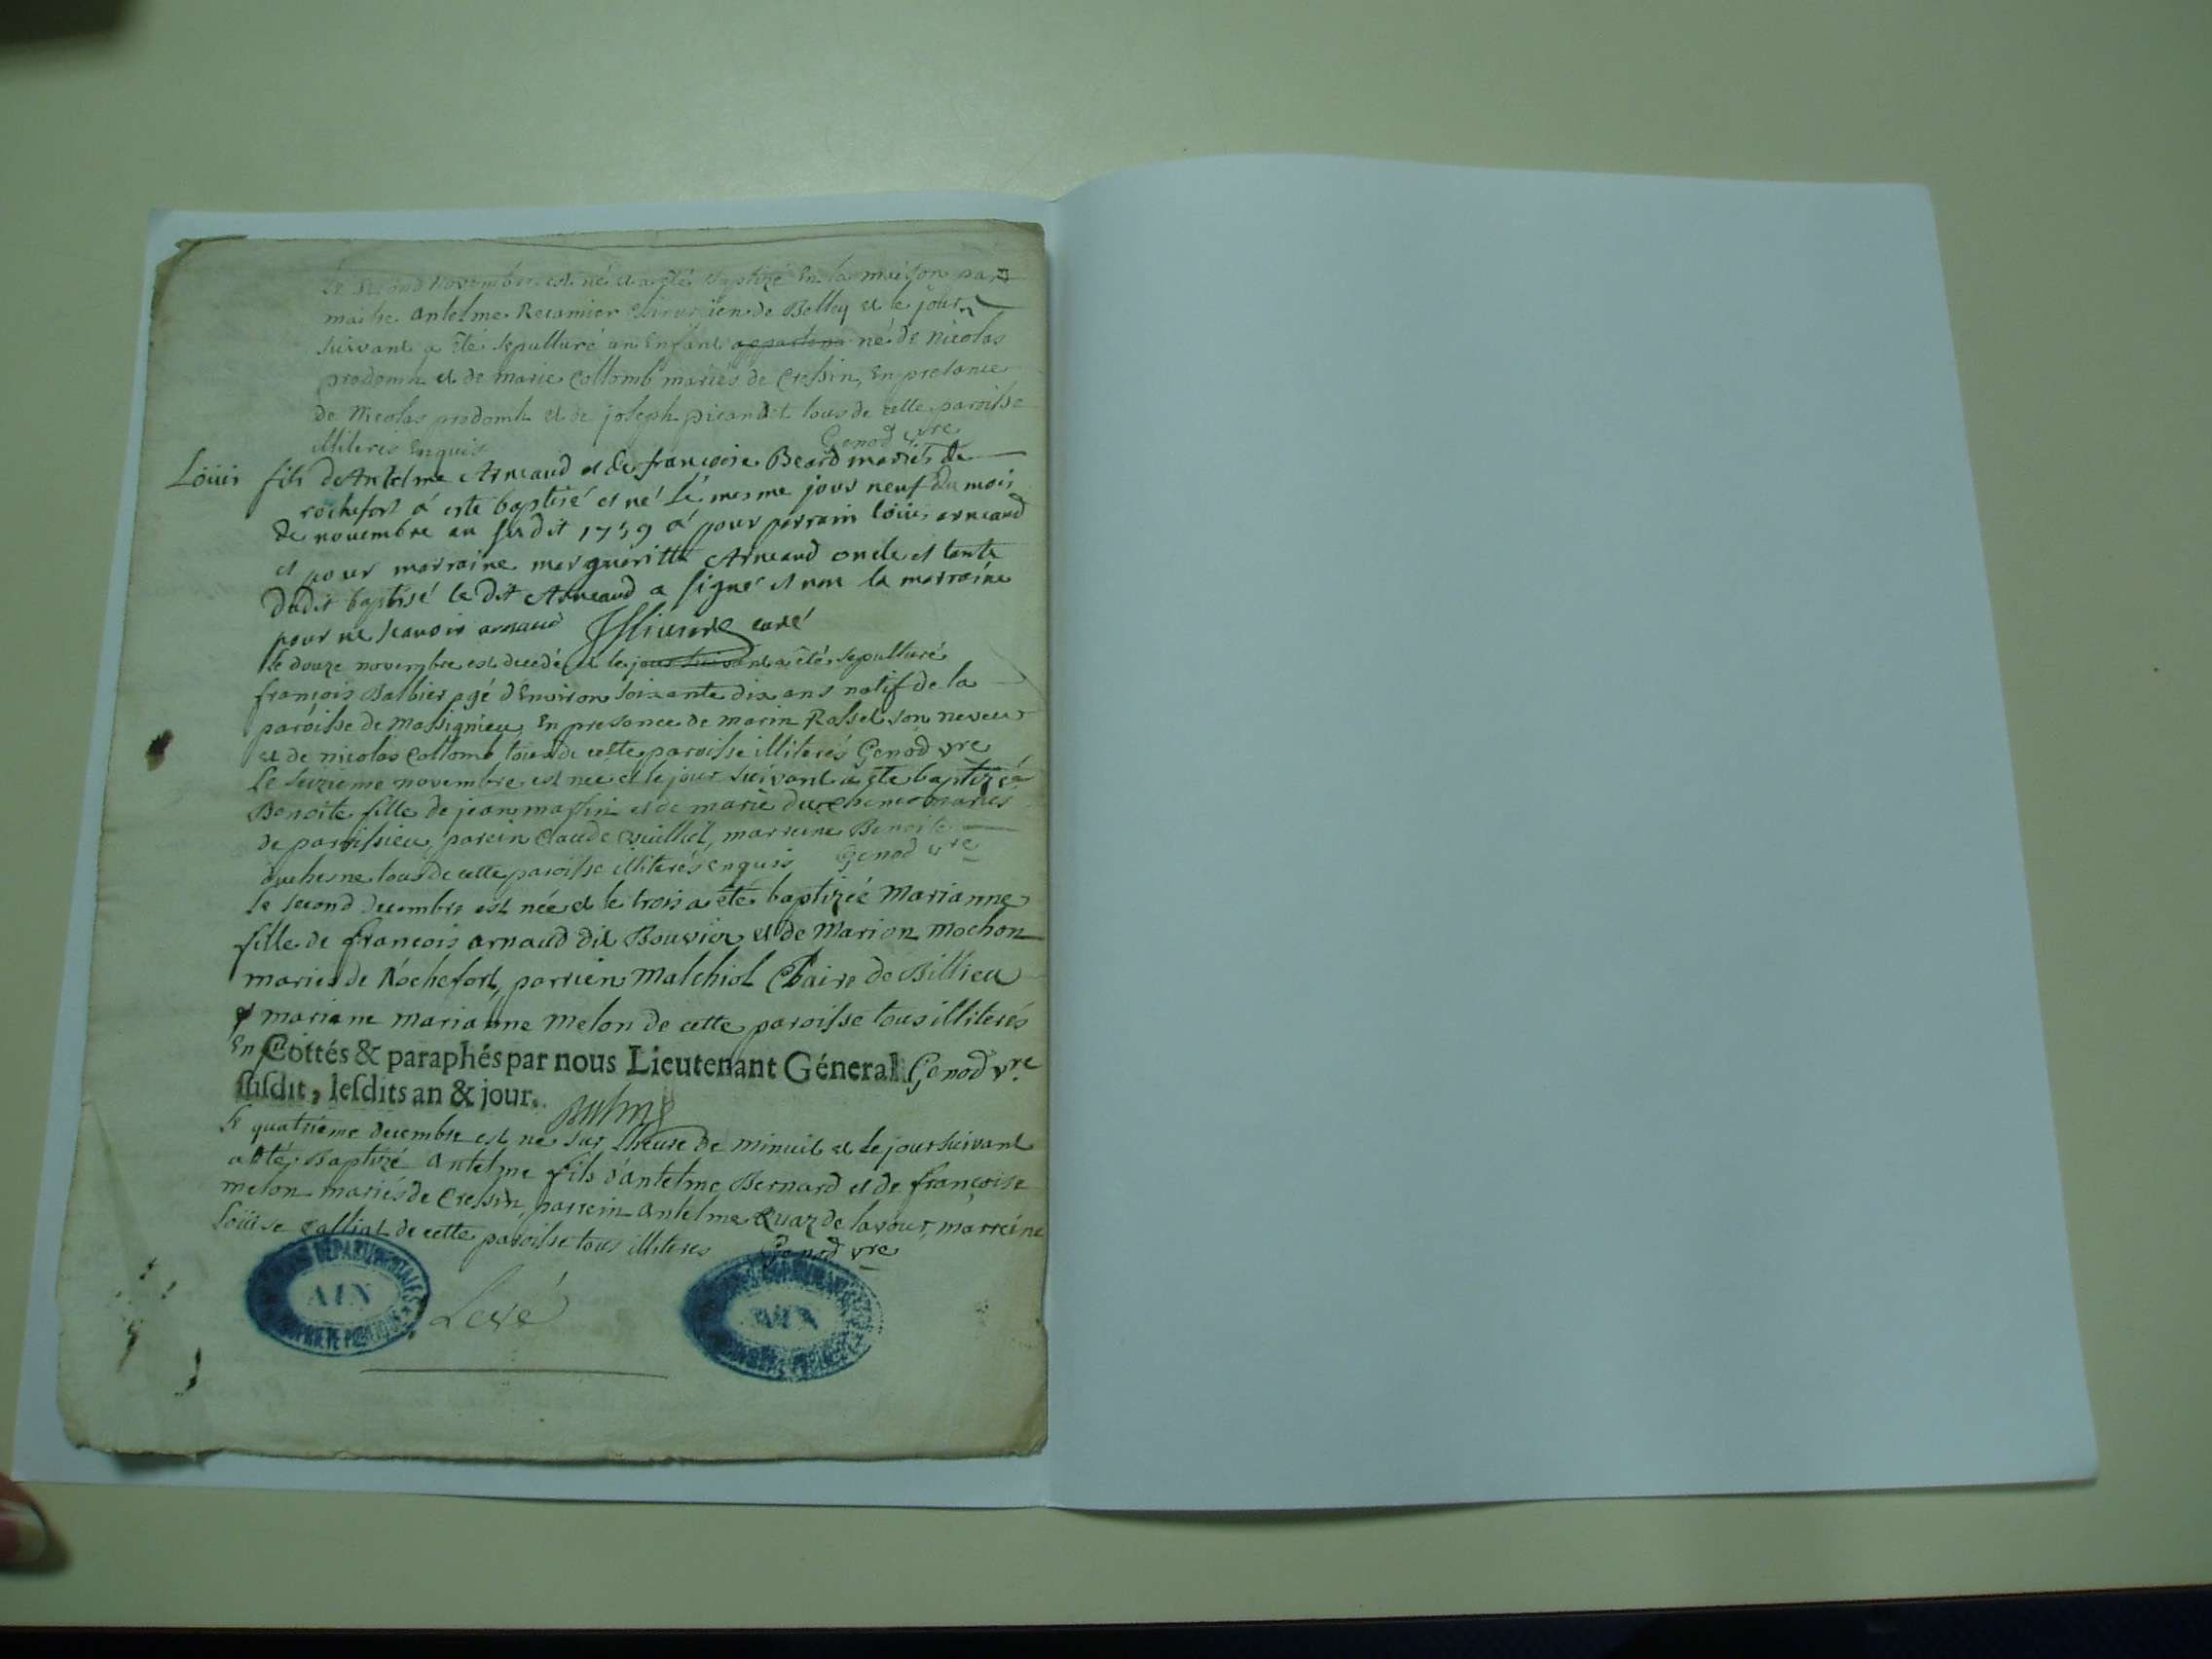 Le second novembre est né et a été baptizé en la maison par
maitre antelme Recamier chirurgien de Belley et le jour
suivant a été sepulturé un enfant né de nicolas
prodomt et de marie Collomb mariés de Cressin, en presance
de Nicolas prodomt et de joseph picandet tous de cette paroisse
illiteres enquis Genod vre
Loüis fils de Antelme Arneaud et de françoise Beard mariés de
rochefort á este baptisé et né le mesme jour neuf du mois
de novembre an susdit 1759 a pour parrain loüis arneaud
et pour marraine margueritte Arneaud oncle et tante
dudit baptisé le dit Arneaud a signé et non la marraine
pour ne scavoir arnaud curé
Le douze novembre est decedé et le jour suivant a été sepulturé
françois Balbier agé d'environ soixante dix ans natif de la
paroisse de Massignieu, en presance de marin Rosset son neveu
et de nicolas Collomb tous de cette paroisse illiterés Genod vre
Le seizieme novembre est née et le jour suivant a été baptizée
Benoite fille de jean massin et de marie duchesne mariés
de parissieu, parein Claude vuilliet, marreine Benoite
duchesne tous de cette paroisse illiterés enquis Genod vre
Le second decembre est née et le trois a été baptizée Marianne
fille de françois arnaud dit Bouvier et de Marion Mochon
mariés de Rochefort, parrien Malchiol Claire de Billieu
et mariene marianne Melon de cette paroisse tous illiterés
En Cottés & paraphés par nous Lieutenant Géneral Genod vre
susdit, lesdits an & jour.
Le quatrieme decembre est né sur lheure de minuit et le jour suivant
a été Baptizé Antelme fils d'antelme Bernard et de françoise
melon mariés de Cressin, parrein antelme Quaz de lavour, marreine
Loüise Calliat de cette paroisse tous illiteres Genod vre
ARCHIVES DÉPARTEMENTALES AIN PROPRIÉTÉ PUBLIQUE
Levé
ARCHIVES DÉPARTEMENTALES AIN PROPRIÉTÉ PUBLIQUE